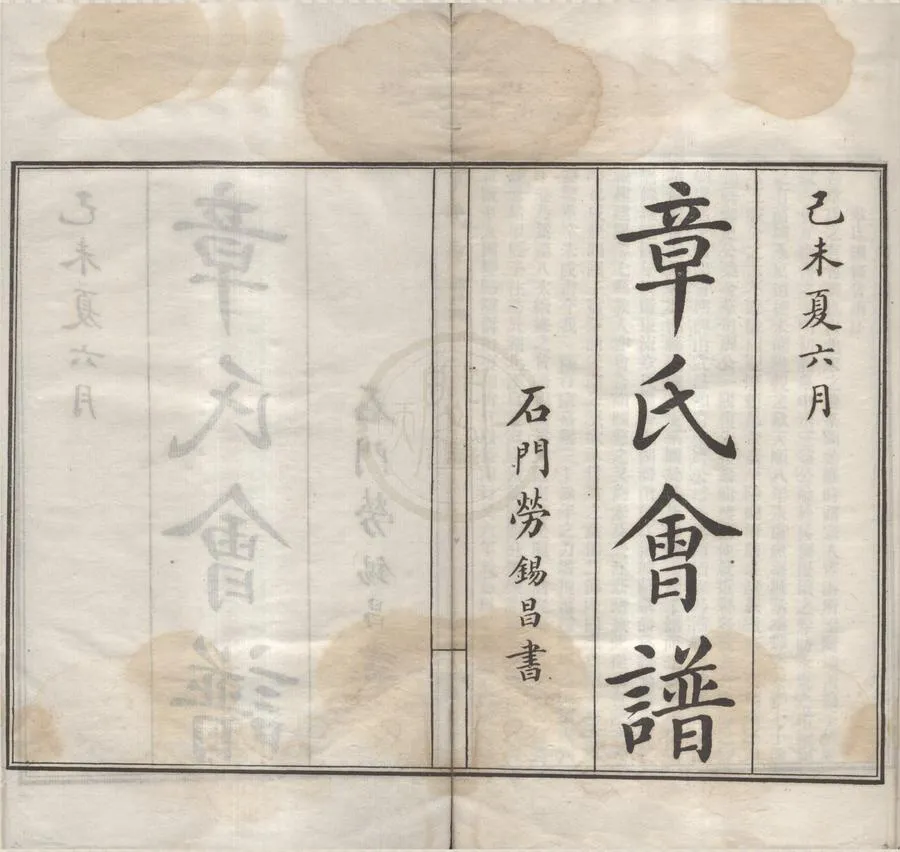 己未夏六月
章氏會譜
石門勞錫昌書